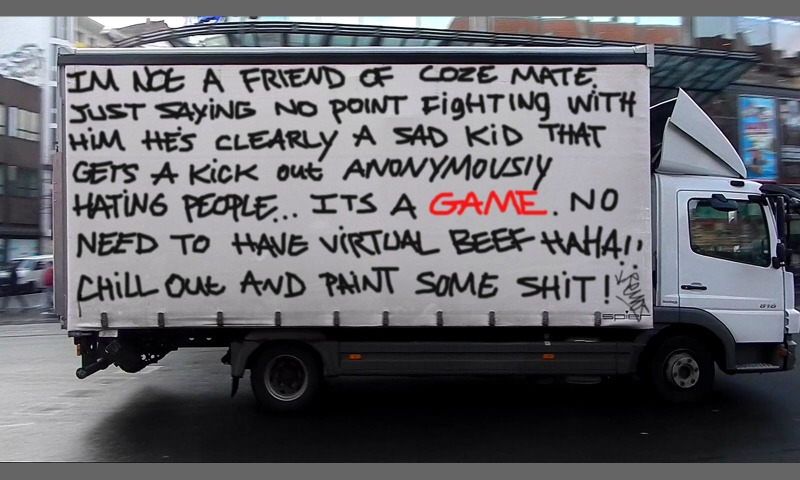 IM NOT A FRIEND OF COZE MATE.
JUST SAYING NO POINT FIGHTING WITH
HIM HE'S CLEARLY A SAD KID THAT
GETS A KICK OUT ANONYMOUSLY
HATING PEOPLE... ITS A GAME. NO
NEED TO HAVE VIRTUAL BEEF HAHA!!
CHILL OUT AND PAINT SOME SHIT!
spier
816